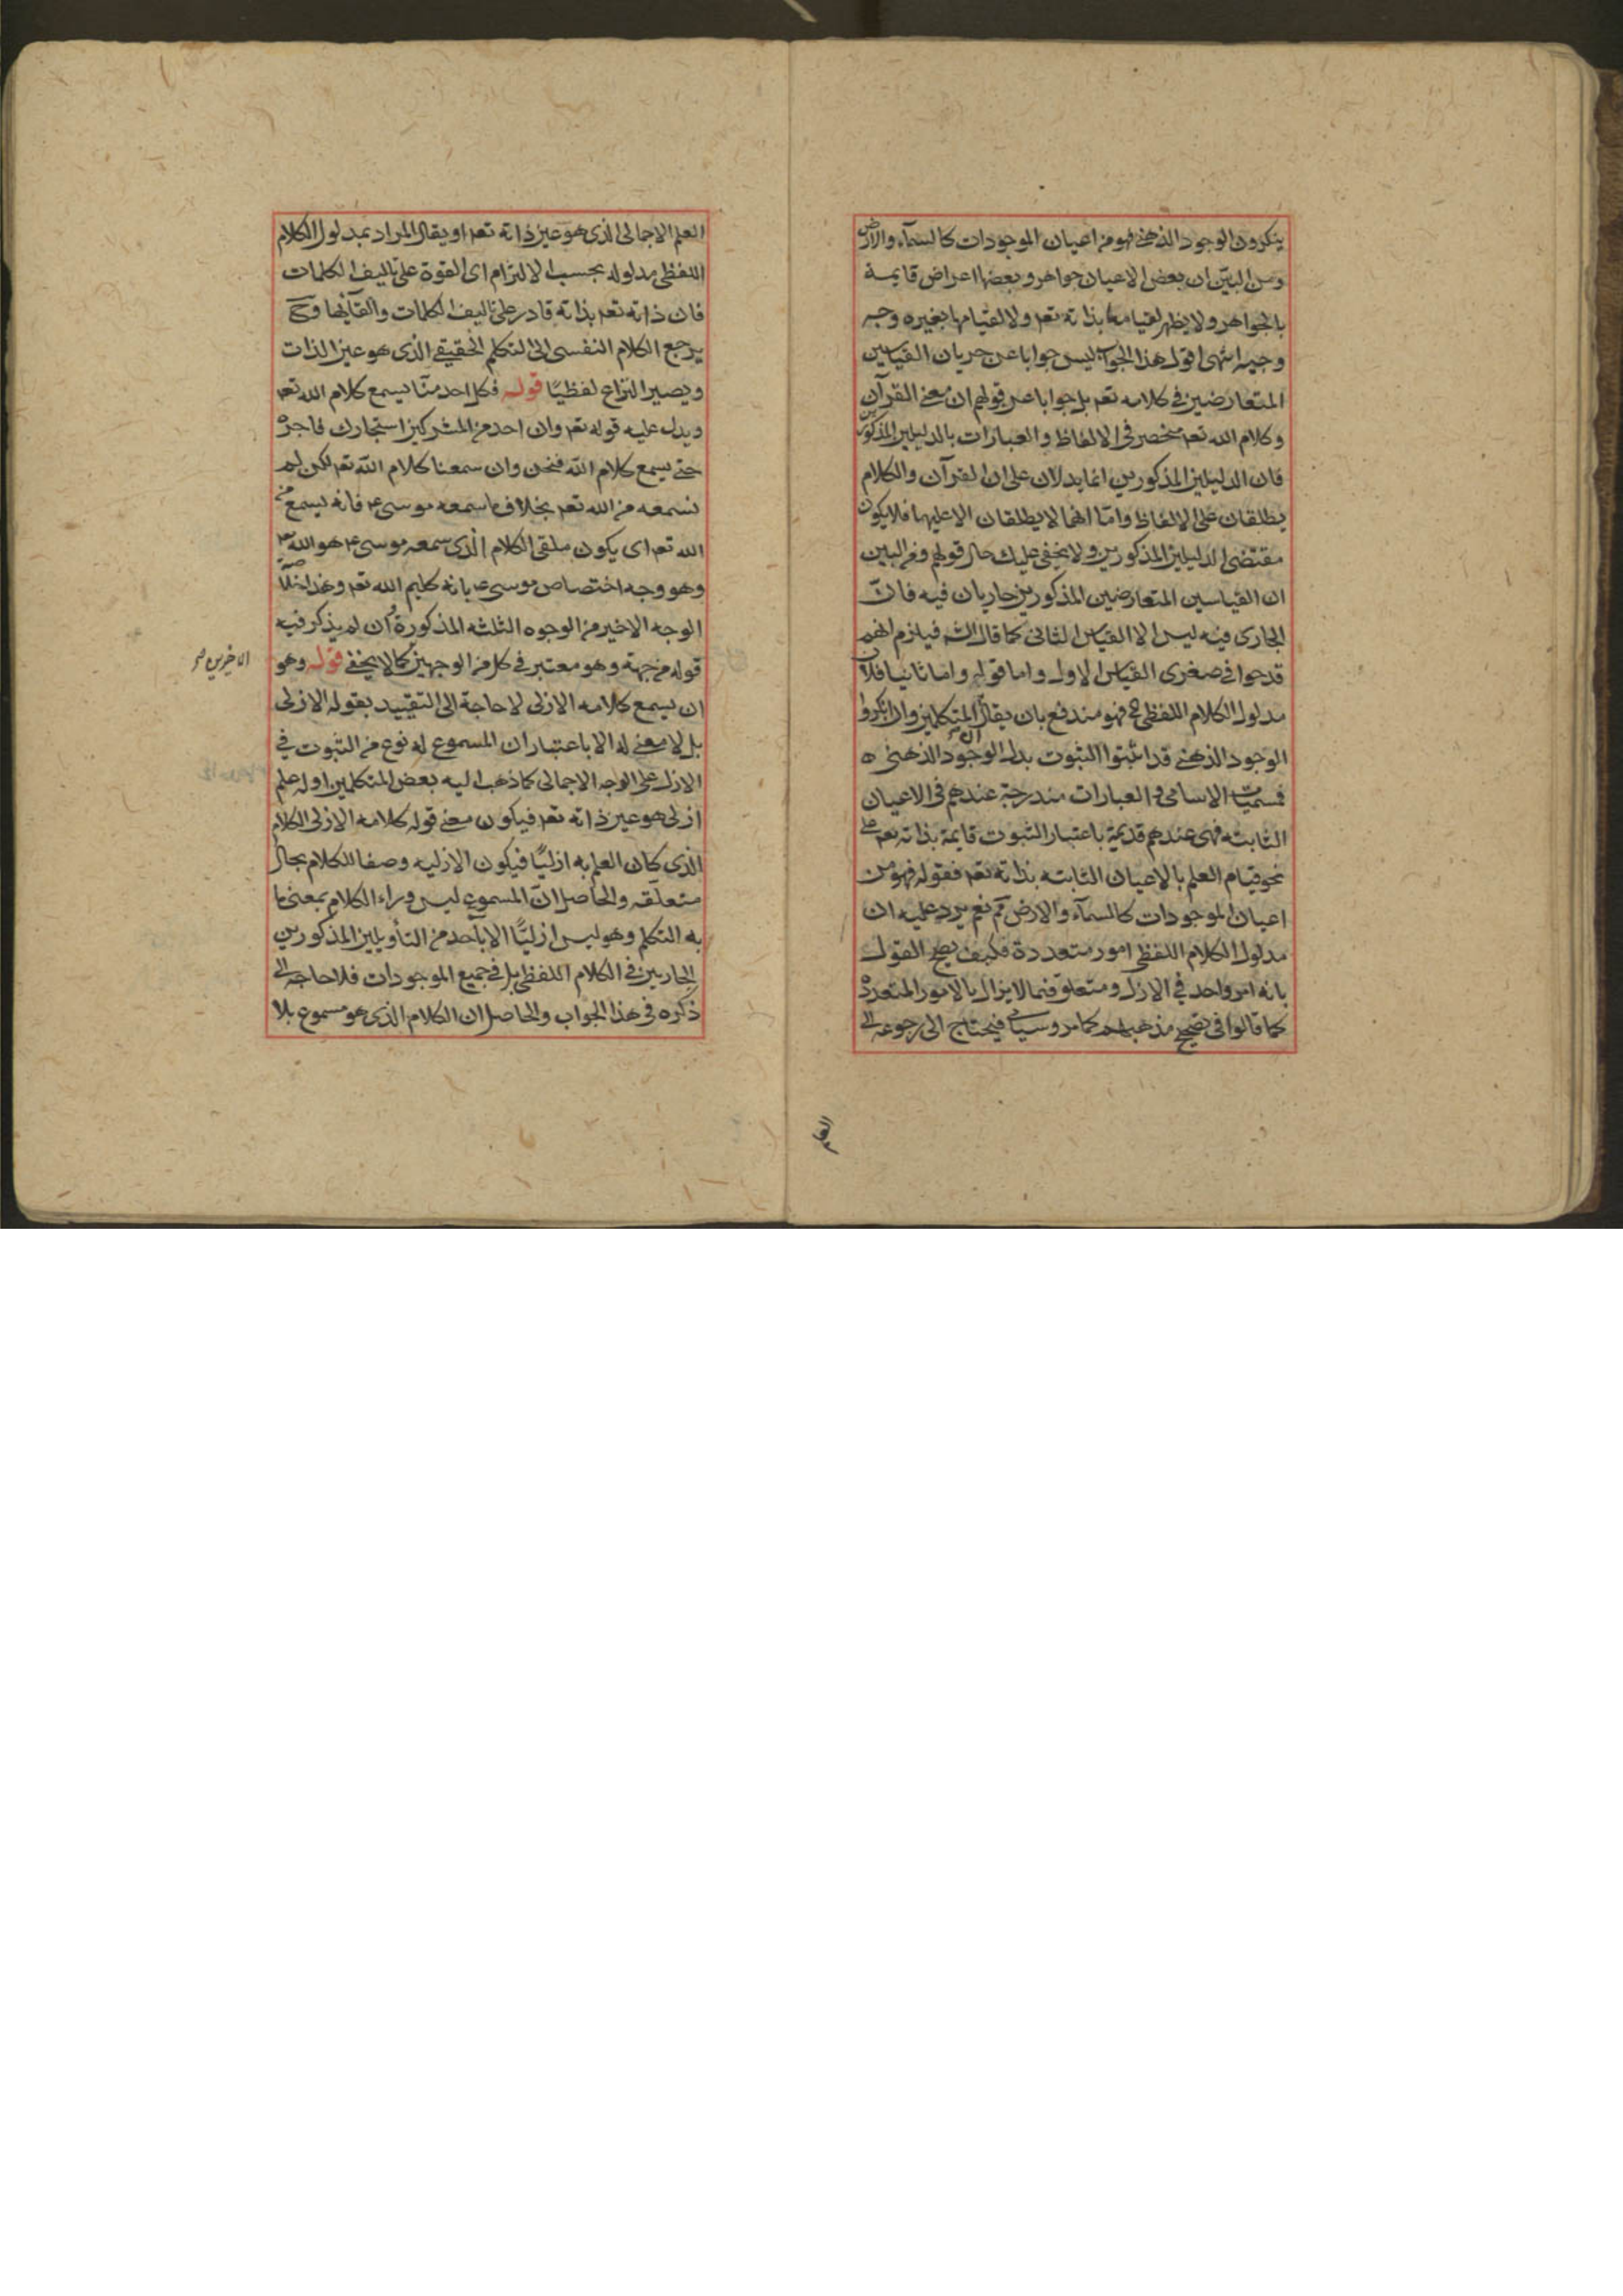 ينكرون الوجود الذهنى فهو من اعيان الموجودات كالسمآء والارض
ومن البيّن ان بعض الاعيان جواهر وبعضها اعراض قايمة
بالجواهر ولا يظهر لقيامها بذاته تعم ولا لقيامها بغيره وجه
وجيه انتهى اقول هذا الجواب ليس جوابا عن جريان القياسين
المتعارضين فى كلامه تعم بل جوابا عن قولهم ان معنى القرآن
وكلام الله تعم منحصر فى الالفاظ والعبارات بالدليلين المذكورين
فان الدليلين المذكورين انما يدلان على ان القرآن والكلام
يطلقان على الالفاظ وامّا انهما لا يطلقان الا عليها فلا يكون
مقتضى الدليلين المذكورين ولا يخفى عليك حال قولهم ومن البين
ان القياسين المتعارضين المذكورين جاريان فيه فانّ
الجارى فيه ليس الا القياس الثانى كما قال الش فيلزم انهم
قدحوا فى صغرى القياس الاول واما قوله واما ثانيا فلان
مدلول الكلام اللفظى ح فهو مندفع بان يقال المتكلمين وان انكروا
الوجود الذهنى قد اثبتوا الثبوت بدل الوجود الذهنى
فمسميات الاسامى والعبارات مندرجة عندهم فى الاعيان
الثابتة فهى عندهم قديمة باعتبار الثبوت قايمة بذاته تعم على
نحو قيام العلم بالاعيان الثابته بذاته تعم فقوله فهو من
اعيان الموجودات كالسمآء والارض مم نعم يرد عليه ان
مدلول الكلام اللفظى امور متعددة فكيف يصح القول
بانه امر واحد فى الازل ومتعلق فيما لا يزال بالامور المتعددة
كما قالوا فى تصحيح مذهبهم كما مر وسياتى فيحتاج الى رجوعه الى
العلم
العلم الاجمالى الذى هو عين ذاته تعم او يقال المراد بمدلول الكلام
اللفظى مدلوله بحسب الالتزام اى القوة على تاليف الكلمات
فان ذاته تعم بذاته قادر على تاليف الكلمات والقآئها وح
يرجع الكلام النفسى الى التكلم الحقيقى الذى هو عين الذات
ويصير النزاع لفظيًا قوله فكل احد منّا يسمع كلام الله تعم
ويدل عليه قوله تعم وان احد من المشركين استجارك فاجره
حتى يسمع كلام الله فنحن وان سمعنا كلام الله تعم لكن لم
نسمعه من الله تعم بخلاف ما سمعه موسى ع فانه يسمع من
الله تعم اى يكون ملقى الكلام الذى سمعه موسى ع هو الله تعم
وهو وجه اختصاص موسى ع بانه كليم الله تعم وهذا
الوجه الاخير من الوجوه الثلثه المذكورة وان لم يذكر فيه
قوله من جهة وهو معتبر فى كل من الوجهين كما لا يخفى قوله وهو
الاخيرين صح
ان يسمع كلامه الازلى لا حاجة الى التقييد بقوله الازلى
بل لا معنى له الا باعتبار ان المسموع له نوع من الثبوت فى
الازل على الوجه الاجمالى كما ذهب اليه بعض المتكلمين او له علم
ازلى هو عين ذاته تعم فيكون معنى قوله كلامه الازلى الكلام
الذى كان العلم به ازليًا فيكون الازليه وصفا للكلام بحال
متعلقه والحاصل انّ المسموع ليس وراء الكلام بمعنى ما
به التكلم وهو ليس ازليًا الا باحد من التأويلين المذكورين
الجاريين فى الكلام اللفظى بل فى جميع الموجودات فلا حاجه الى
ذكره فى هذا الجواب والحاصل ان الكلام الذى هو مسموع بلا